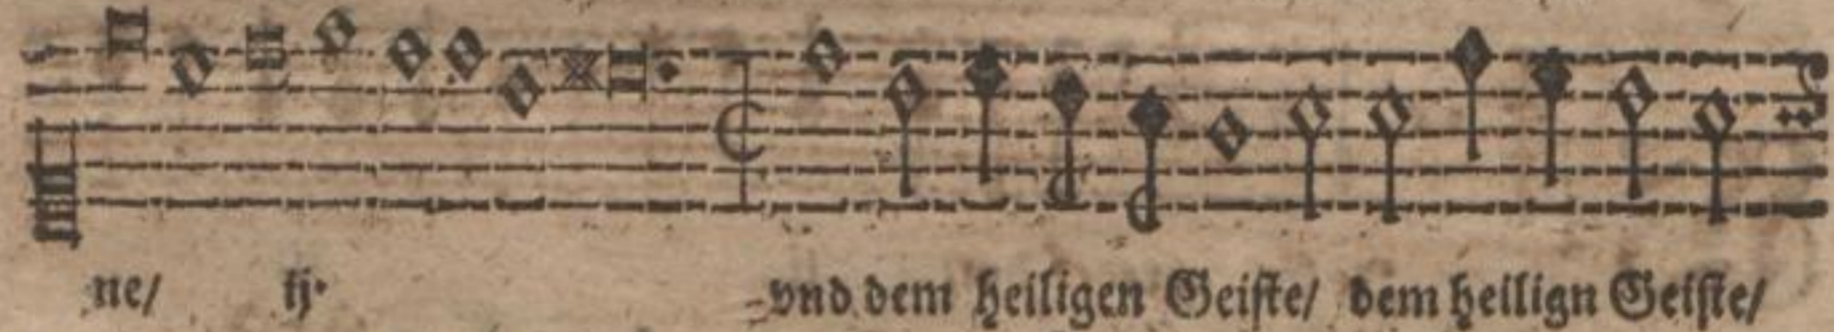 ne/ ij. vnd dem heiligen Geiste/ dem heilign Geiste/